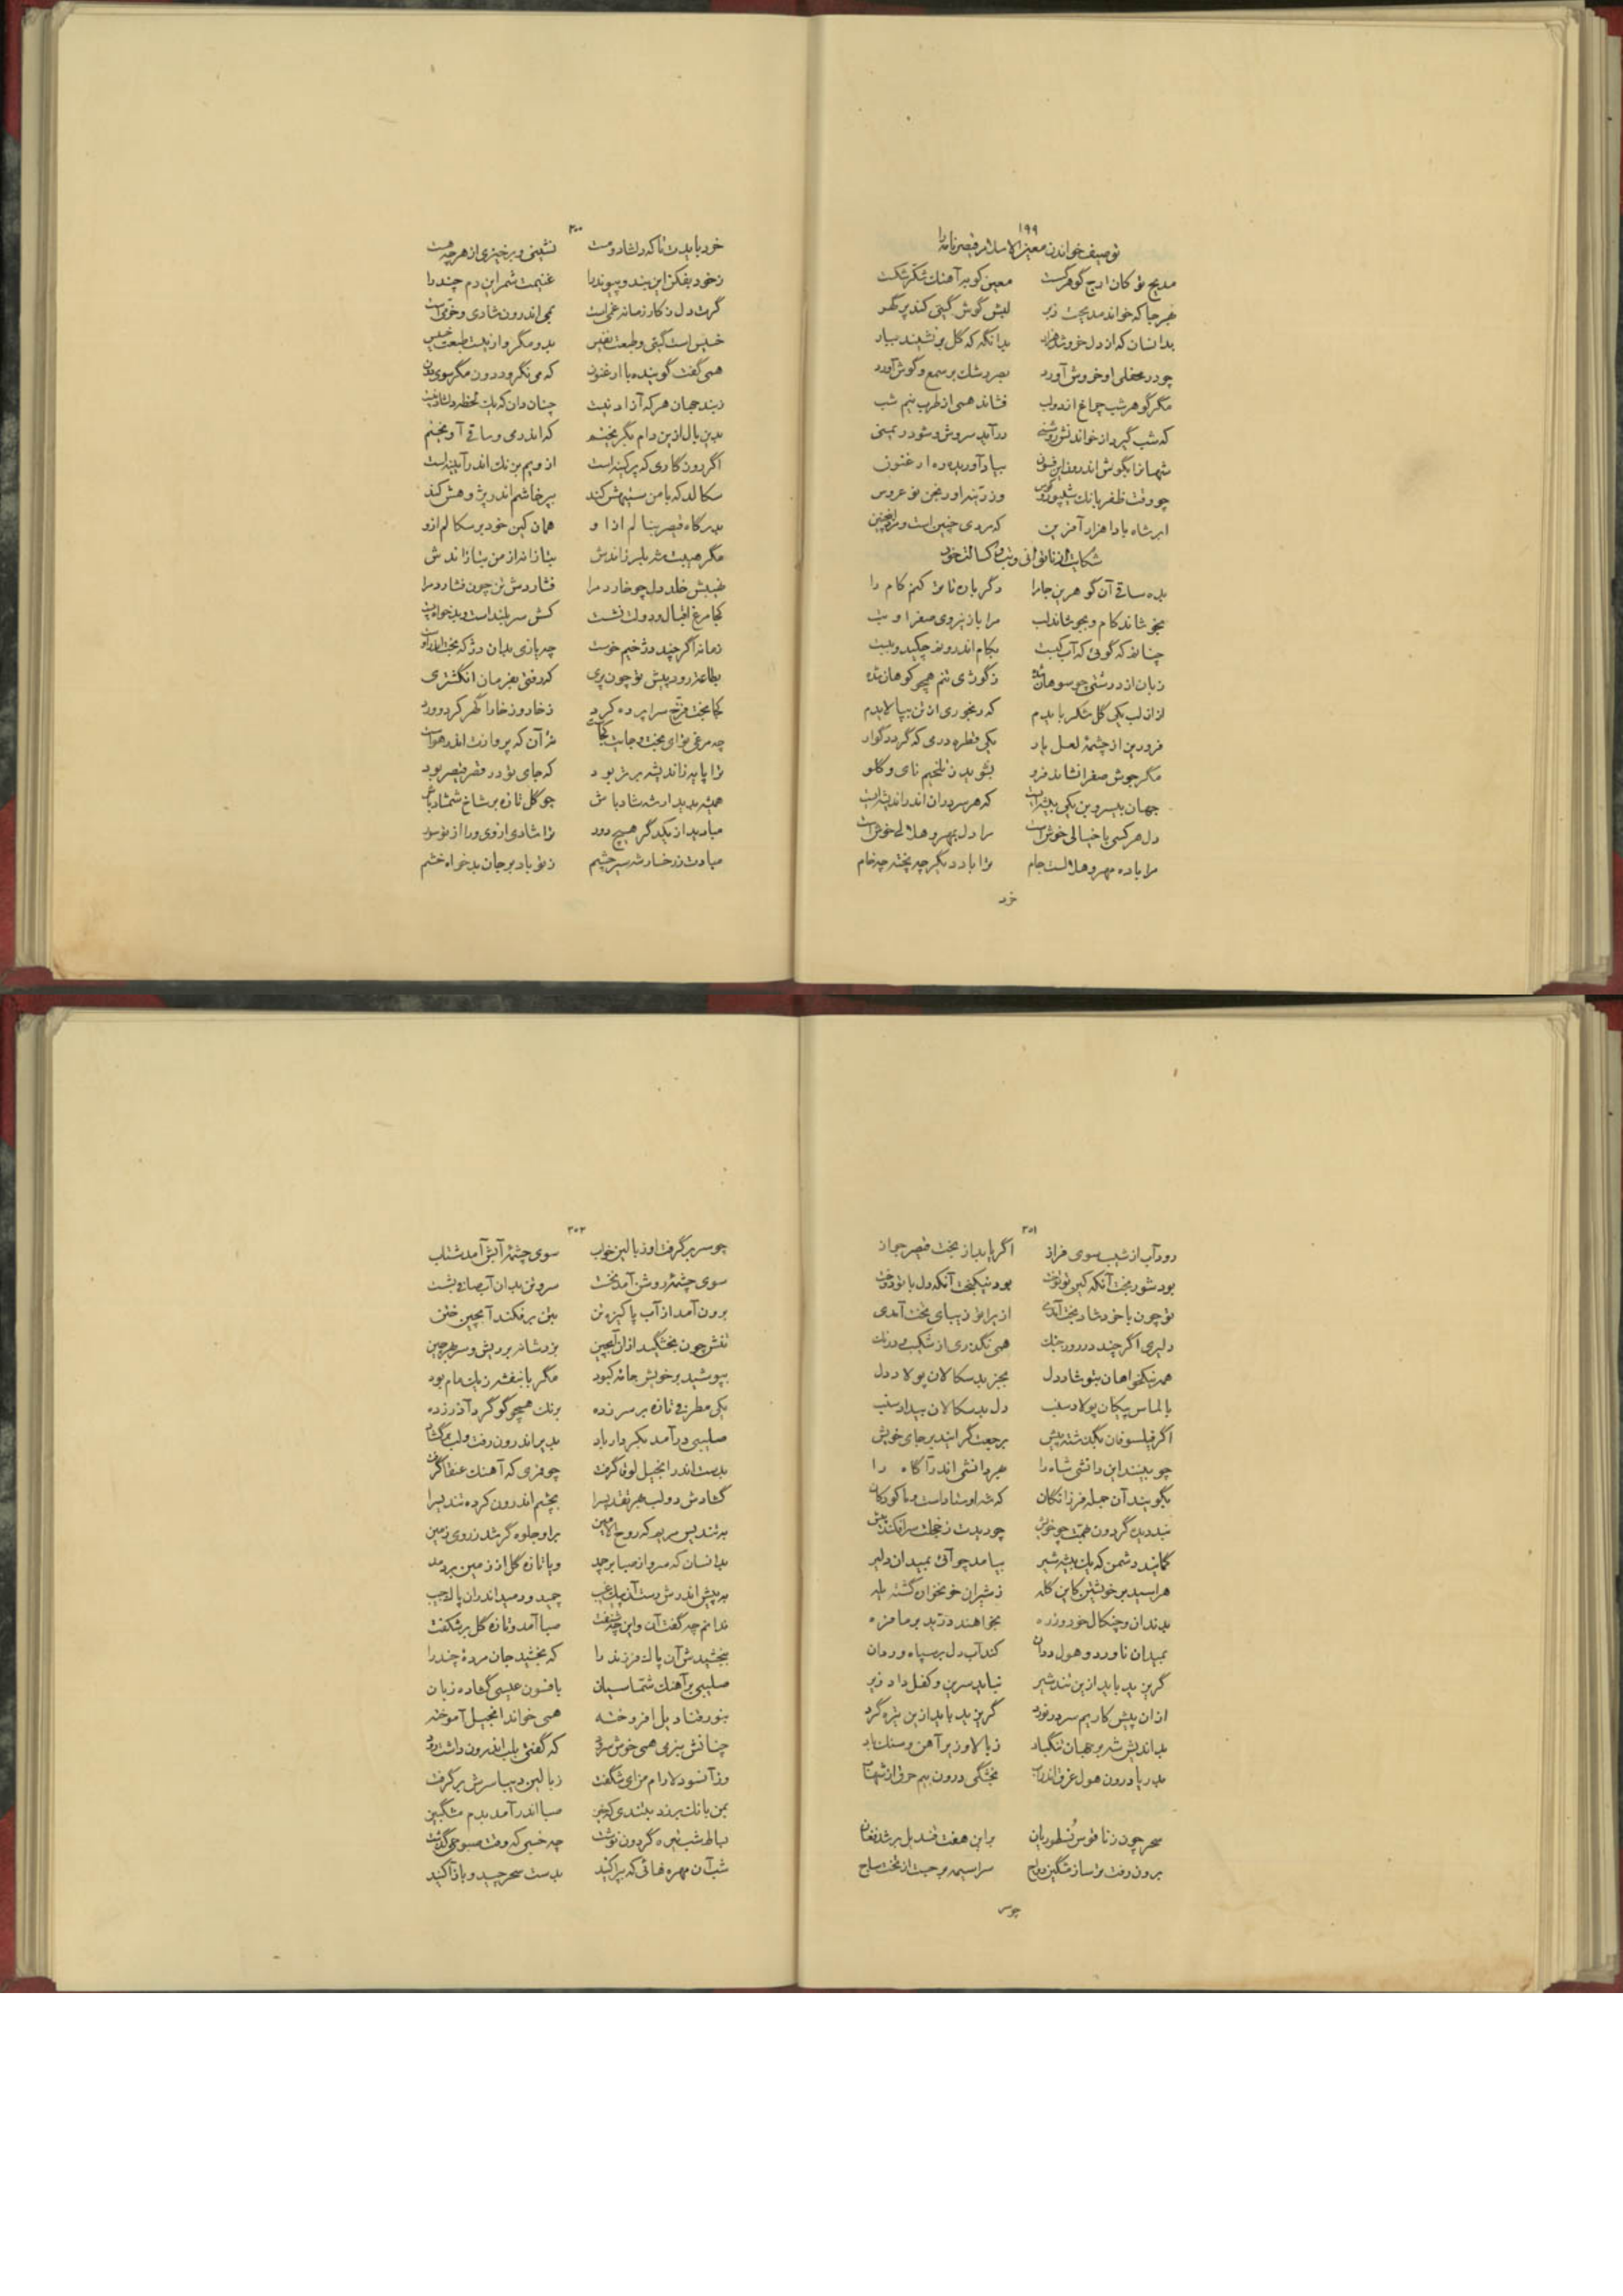 ۱۹۹
توصیف خواندن معین الاسلام قیصرنامه را
مدیح تو کان ارج گوهر شکست معین کو بر آهنگ شکر شکست
بهر جا که خواند مدیحت ز بر لبش گوش گیتی کند پر گهر
بدانسان که از دل خروشد هزار بدانگه که گل بر نشیند ببار
چو در محفلی او خروش آورد بصر رشک بر سمع و گوش آورد
مگر گوهر شب چراغ اندر لب فشاند همی از طرب نیم شب
که شب گیرد از خواندنش روشنی درآید سروش و شود در
بگوش اندرون این فسون بیاد آوریده ره ارغنون
چو وقت ظفر بانگ شیپور و کوس وز نو عروس
ابر شاه بادا هزار آفرین که مردی چنین است و مرد اینچنین
شکایت از ناتوانی و تب و کسالت خود
بده ساقی آن گوهرین جام را دگر باره تا تر کنم کام را
بخوشاند کام و بجوشاند لب مرا باز نیروی صفرا و تب
چنانم که گوئی که آب بکام اندرونم چکید و
زبان از درشتی چو سوهان شده ز گوژی تنم همچو کوهان شده
از آن لب یکی گل شکر بایدم که رنجوری از تن بپالایدم
فرو ریز از چشمهٔ لعل یار یکی قطره درمی که گردد گوار
مگر جوش صفرا نشاند فرو بشوید ز تلخیم نای و گلو
جهان بیسر و بن یکی بیشه است که هر سر در آن اندر اندیشه است
دل هر کسی با خیالی خوش است مرا دل بمهر و هلالی خوش است
مرا باده مهر و هلالست جام ترا باد دیگر چه پخته چه خام
خرد
۲۰۰
خرد بایدت تا که دلشاد و مست نشینی و برخیزی از هر چه هست
ز خود بفکن این بند و پیوند را غنیمت شمر این دم چند را
گرت دل ز کار زمانه غمی است بمی اندرون شادی و خرمی است
خسیس است گیتی و طبعت نفیس بدو مگرو ار نیست طبعت خسیس
همی گفت گوینده با ارغنون که می نگرو درون مگر سوی دون
ز بند جهان هر که آزاد نیست چنان دان که یک لحظه دلشاد نیست
بدین بال ازین دام بگریختم که اندر می و ساقی آویختم
اگر روزگاری که پر کینه است ازویم بر زنگ اندر آیینه است
سگالد که با من ستیهش کند بپرخاشم اندر پژوهش کند
بدرگاه قیصر بنالم ازو همان کین خود بر سگالم ازو
مگر هیبت شه بلرزاندش بتازانه از من بتازاندش
نهیبش خلد دل چو خارد مرا فشاردش تن چون فشارد مرا
کجا مرغ اقبال و دولت نشست کش سر بلند است و بدخواه پست
زمانه اگر چند دژخیم خوست چه یازی بدان دژ که بخت اندروست
بطاعت رود پیش تو چون پری که رفتی بفرمان انگشتری
کجا بخت فرخ سراپرده کرد ز خار و ز خارا گهر کرد ورد
چه مرغی تو ای بخت و جایت کجاست نه آن که پروازت اندر هواست
ترا پایه ز اندیشه برتر بود که جای تو در قصر قیصر بود
همیشه بدیدار شه شاد باش چو گل تازه بر شاخ شمشاد باش
مبادید از یکدگر هیچ دور ترا شادی از وی ورا از تو سور
مبادت ز رخسار شه سیر چشم ز تو باد بر جان بدخواه خشم
۲۰۱
رود آب از شیب سوی فراز اگر یابد از بخت قیصر جواز
بود شور بخت آنکه کین تو توخت بود نیکبخت آنکه دل با تو دوخت
تو چون با خود شاد بخت آمدی ازیرا تو زیبای تخت آمدی
دلیری اگر چند در روز جنگ همی نگذری از شکیب و درنگ
همه نیکخواهان بتو شاد دل بجز بدسگالان پولاد دل
بالماس پیکان پولاد سنب دل بدسگالان بیداد سنب
اگر فیلسوفان بگذشته پیش برجعت گرایند بر جای خویش
چو بینند این دانشی شاه را بهر دانشی اندر آگاه را
بگویند آن جمله فرزانگان که شه اوستاد است و ما کودکان
ندیده گردون همت چو خویش چو دیدت ز خجلت سرافکند پیش
گمانید دشمن که یک بیشه شیر بیامد چو آئی بمیدان دلیر
هراسید بر خویشتن کاین گله ز شیران خونخوار گشته یله
بدندان و چنگال خود و زره بخواهند درید بر ما فره
بمیدان ناورد و هول دران کند آب دل بر سپاه و ردان
گریزید باید ازین تند شیر نیابد سرین و کفل داد زیر
از آن پیش کاریم سر در نورد گریزید باید ازین شره گرد
بداندیش شه بر جهان تنگ باد ز بالا و زیر آهن و سنگ باد
بدریا درون هول غرق اندراب بخشکی درون بیم حرق از شهاب
سحر چون ز ناقوس نسطوریان بر این هفت قندیل بر شد فغان
برون رفت ترسا ز مشگین دواج سراسیمه برجست از تخت ساج
چو سر
۲۰۲
چو سر بر گرفت او ز بالین خواب سوی چشمهٔ آبش آمد شتاب
سوی چشمهٔ روشن آمد نخست سر و تن بدان آب صافی بشست
برون آمد از آب پاکیزه تن بتن بر فکند آبچین ختن
تنش چون بخشگید از آن آبچین بزد شانه بر ریش و سر
بپوشید بر خویش جامهٔ کبود مگر با بنفشه ز یک مام بود
یکی مطرف تازه بر سر زده برنگ همچو گوگرد آذر زده
صلیبی درآمد بکردار باد بدیر اندرون رفت و لب برگشاد
بدست اندر انجیل لوقا گرفت چو مرغی که آهنگ عنقا گرفت
گشادش دو لب بهر تقدیس را بچشم اندرون کرده تندیس را
به تندیس مریم که روح الامین بر او جلوه گر شد ز روی زمین
بدانسان که سرو از صبا بر چمد و یا تازه گل از زمین بر دمد
ندانم چه گفت آن و این چه شنفت صبا آمد و تازه گل بر شکفت
ببخشیدش آن پاک فرزند را که بخشید جان مردهٔ چند را
صلیبی بر آهنگ شماسیان بافسون عیسی گشاده زبان
بنور قنادیل افروخته همی خواند انجیل آموخته
چنانش بنرمی همی خوش سرود که گفتی بلب اندرون داشت رود
وز آنسو دلارام من ای شگفت ز بالین دیبا سرش بر گرفت
بمن بانگ بر زد بتندی که خیز صبا اندر آمد بدم مشگبیز
بساط شب تیره گردون نوشت چه خسبی که وقت صبوحی گذشت
شب آن مهره هائی که پراکنید بدست سحر چید و باز آکنید